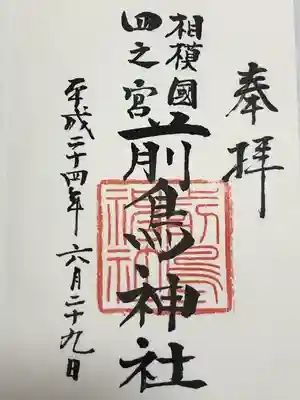 奉拝
相模國
四之宮
前鳥神社
平成二十四年六月二十九日
前鳥神社